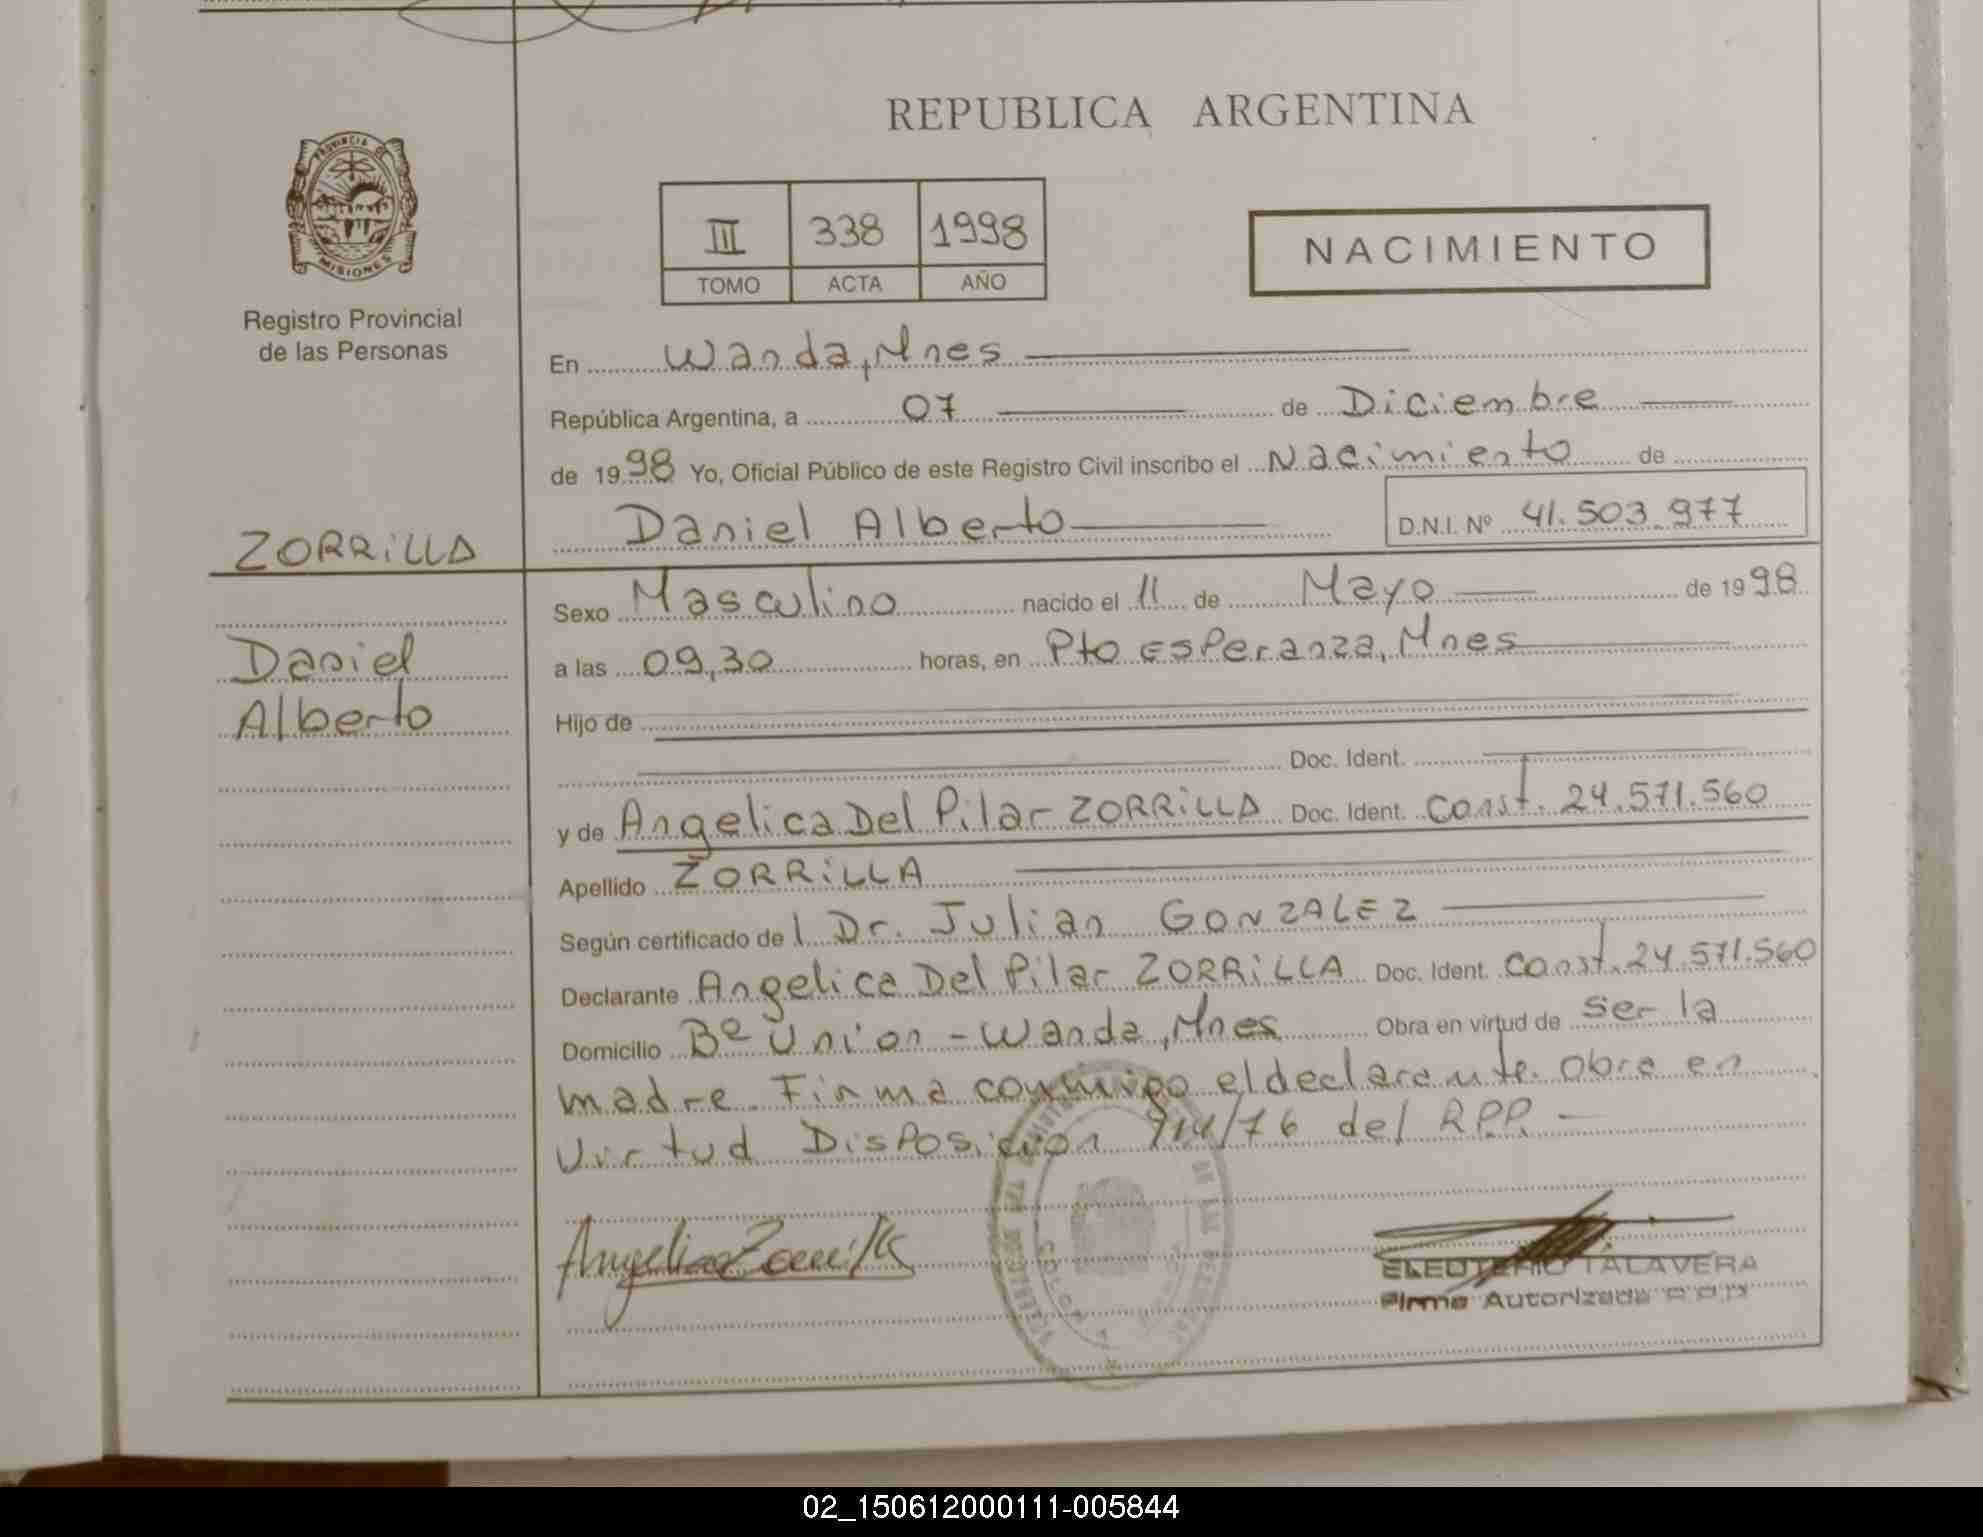 REPUBLICA ARGENTINA
PROVINCIA DE
MISIONES
Registro Provincial
de las Personas
III 338 1998
TOMO ACTA AÑO
NACIMIENTO
En Wanda, Mnes
República Argentina, a 07 de Diciembre
de 1998 Yo, Oficial Público de este Registro Civil inscribo el Nacimiento de
Daniel Alberto D.N.I. Nº 41.503.977
ZORRiLLA
Daniel
Alberto
Sexo Masculino nacido el 11 de Mayo de 1998
a las 09,30 horas, en Pto Esperanza, Mnes
Hijo de
Doc. Ident.
y de Angelica Del Pilar ZORRiLLA Doc. Ident. Const. 24.571.560
Apellido ZORRiLLA
Según certificado de l Dr. Julian GONZALEZ
Declarante Angelica Del Pilar ZORRiLLA Doc. Ident. Const. 24.571.560
Domicilio Bº Union - Wanda, Mnes Obra en virtud de ser la
madre. Firma conmigo el declarante. Obra en
Virtud Disposicion /76 del R.P.P.
Angelica Zorrilla
ELEUTERIO TALAVERA
Firma Autorizada
02_150612000111-005844